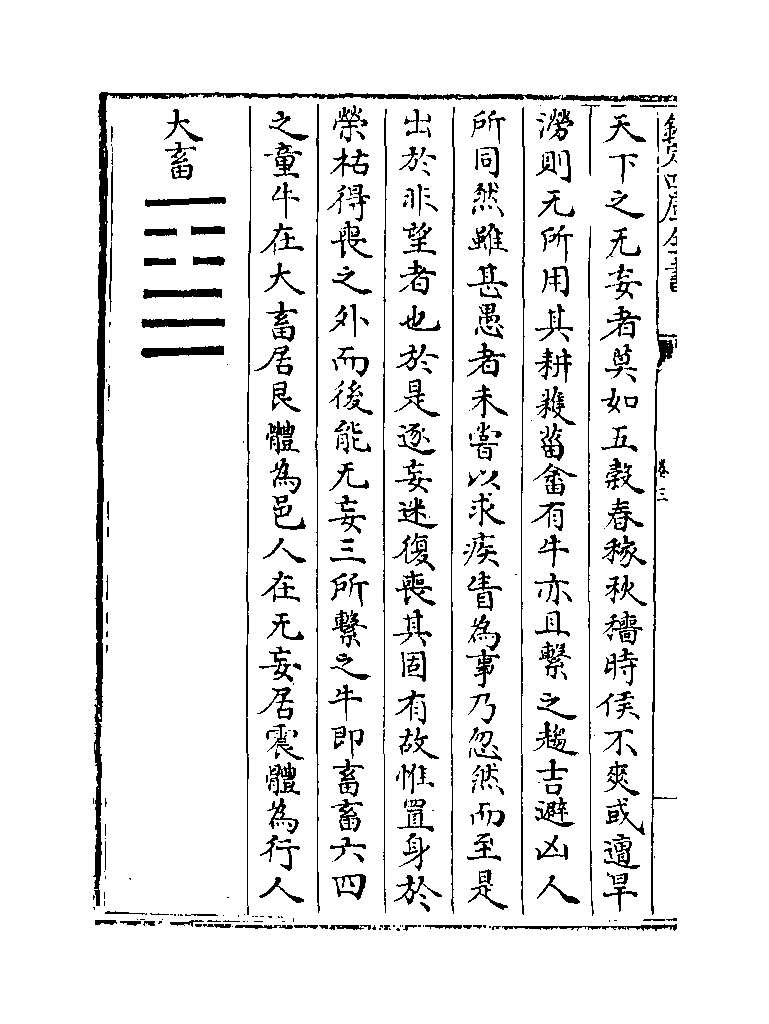 欽定四庫全書
卷三
天下之无妄者莫如五穀春稼秋穡時侯不爽或遭旱
澇則无所用其耕耨菑畬有牛亦且繫之趨吉避凶人
所同然雖甚愚者未嘗以求疾眚為事乃忽然而至是
出於非望者也於是逐妄迷復喪其固有故惟置身於
榮枯得喪之外而後能无妄三所繫之牛即畜畜六四
之童牛在大畜居艮體為邑人在无妄居震體為行人
大畜